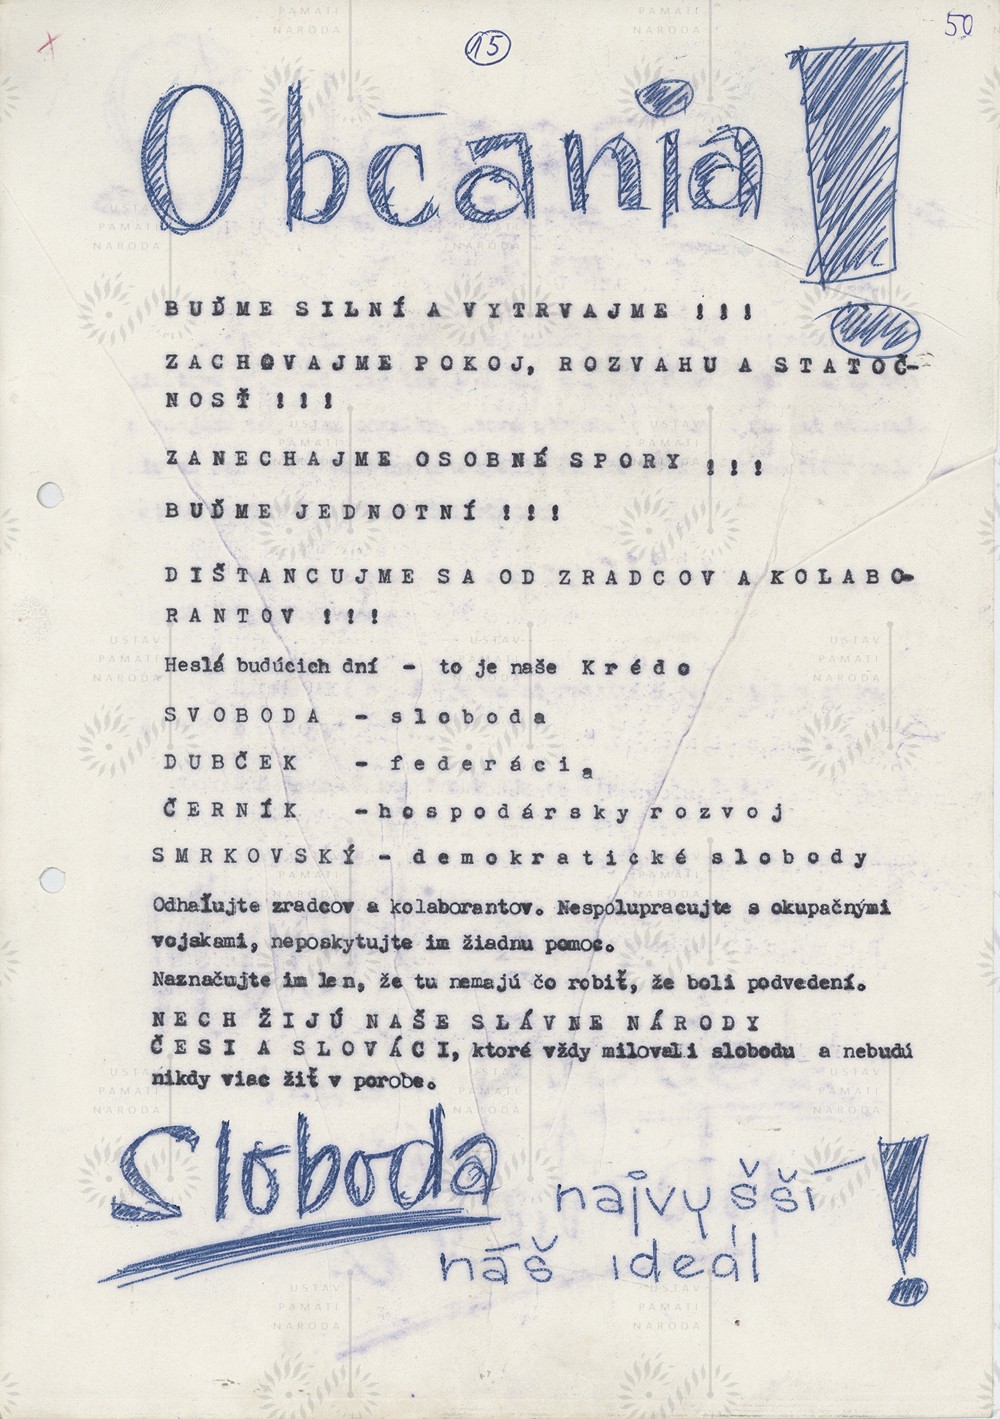 50
15
Občania!
BUĎME SILNÍ A VYTRVAJME !!!
ZACHOVAJME POKOJ, ROZVAHU A STATOČ-
NOSŤ !!!
ZANECHAJME OSOBNÉ SPORY !!!
BUĎME JEDNOTNÍ !!!
DIŠTANCUJME SA OD ZRADCOV A KOLABO-
RANTOV !!!
Heslá budúcich dní - to je naše Krédo
SVOBODA - sloboda
DUBČEK - federácia
ČERNÍK -hospodársky rozvoj
SMRKOVSKÝ - demokratické slobody
Odhaľujte zradcov a kolaborantov. Nespolupracujte s okupačnými
vojskami, neposkytujte im žiadnu pomoc.
Naznačujte im len, že tu nemajú čo robiť, že boli podvedení.
NECH ŽIJÚ NAŠE SLÁVNE NÁRODY
ČESI A SLOVÁCI, ktoré vždy milovali slobodu a nebudú
nikdy viac žiť v porobe.
Sloboda najvyšší
náš ideál!